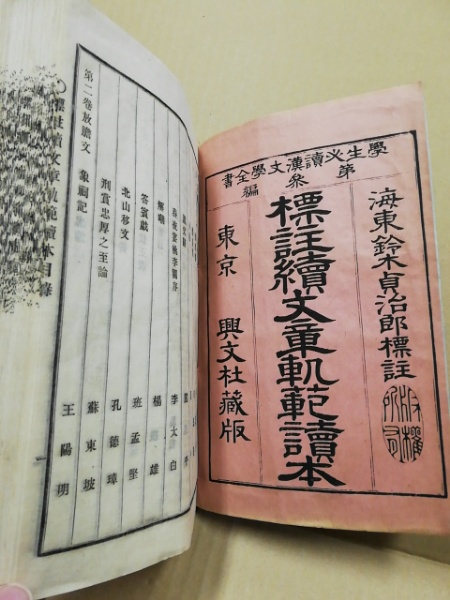 學生必讀漢文學全書
第參編
海東鈴木貞治郎標註
版權所有
標註續文章軌範讀本
東京 興文社藏版
春夜宴桃李園序 李太白
解嘲 楊雄
答賓戲 班孟堅
北山移文 孔德璋
刑賞忠厚之至論 蘇東坡
第二卷放膽文 象祠記 王陽明
標註續文章軌範讀本目錄